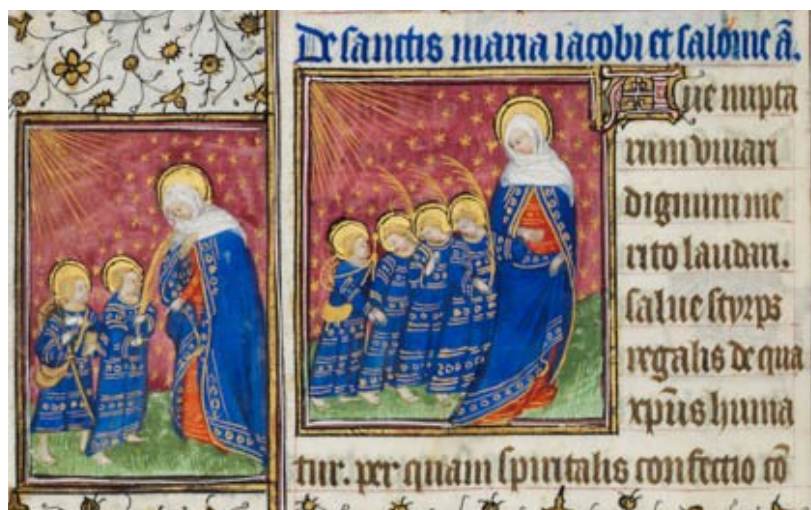 De sanctis maria iacobi et salome ā.
Aue nupta
rum viuari
dignum me
rito laudari.
salue styrps
regalis de qua
xp̄us huma
tur. per quam spiritalis confectio cō